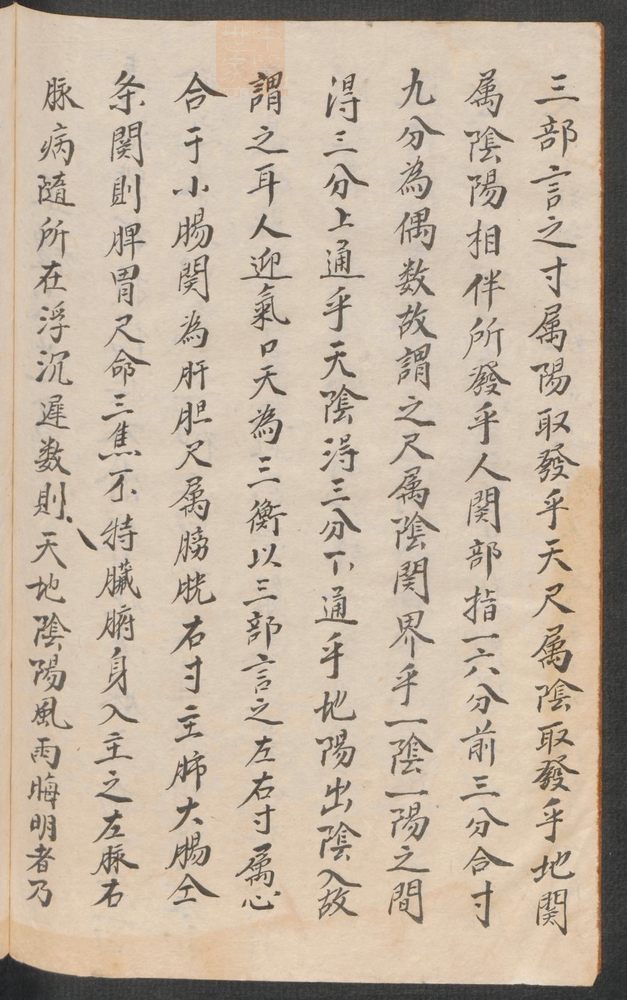 三部言之寸属陽取發乎天尺属陰取發乎地関
属陰陽相伴所發乎人関部指一六分前三分合寸
九分為偶数故謂之尺属陰関界乎一陰一陽之間
得三分上通乎天陰得三分下通乎地陽出陰入故
謂之耳人迎氣口天為三衡以三部言之左右寸属心
合于小腸関為肝胆尺属膀胱右寸主肺大腸全
条関則脾胃尺命三焦不特臓腑身入主之左脉右
脉病隨所在浮沉遲数則天地陰陽風雨晦明者乃